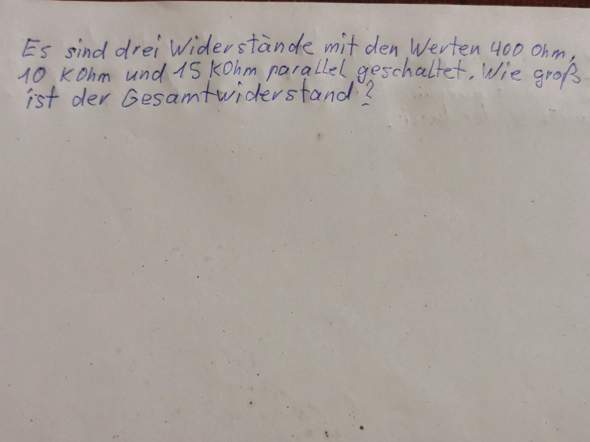 Es sind drei Widerstände mit den Werten 400 Ohm,
10 KOhm und 15 KOhm parallel geschaltet. Wie groß
ist der Gesamtwiderstand?